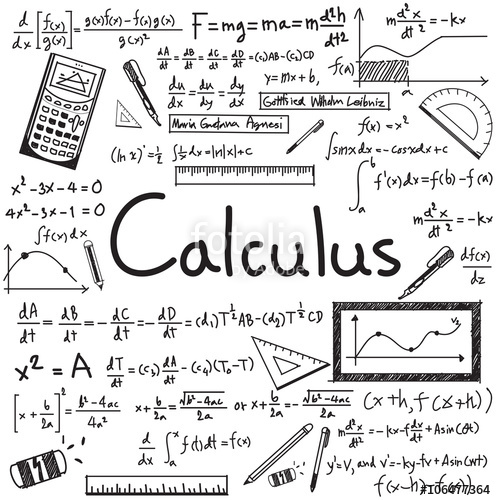 d/dx [f(x)/g(x)] = g(x)f(x) − f(x)g(x) / g(x)²
F = mg = ma = m d²h/dt²
m d²x/dt² = −kx
dA/dt = dB/dt = dC/dt = dD/dt = (c₂)AB−(c₂)CD
f(a)
a
du/dx = du/dy = dy/dx
y = mx + b,
Gottfried Wilhelm Leibniz
Maria Gaetana Agnesi
f(x) = x²
(ln x)' = 1/2
∫ 1/x dx = ln|x|+c
∫sinxdx = −cosxdx + c
∫ₐᵇ f'(x)dx = f(b) −f(a)
x² −3x −4 = 0
4x² −3x −1 = 0
∫f(x) dx
Calculus
fotolia
m d²x/dt² = −kx
df(x)/dz
dA/dt = dB/dt = −dC/dt = −dD/dt = (d₁)T^½ AB−(d₂)T^½ CD
x² = A
dT/dt = (c₃) dA/dt −c₄(T₀−T)
V₂
[x + b/2a]² = b²−4ac / 4a²
x + b/2a = √b²−4ac / 2a or x + b/2a = −√b²−4ac / 2a
(x+h, f(x+h))
m d²x/dt² = −kx−f dx/dt +Asin(ωt)
d/dx ∫ₐˣ f(t)dt = f(x)
y' = V, and v' = −kx −fv +Asin(ωt)
f(x−h)−f(x)
#106077364